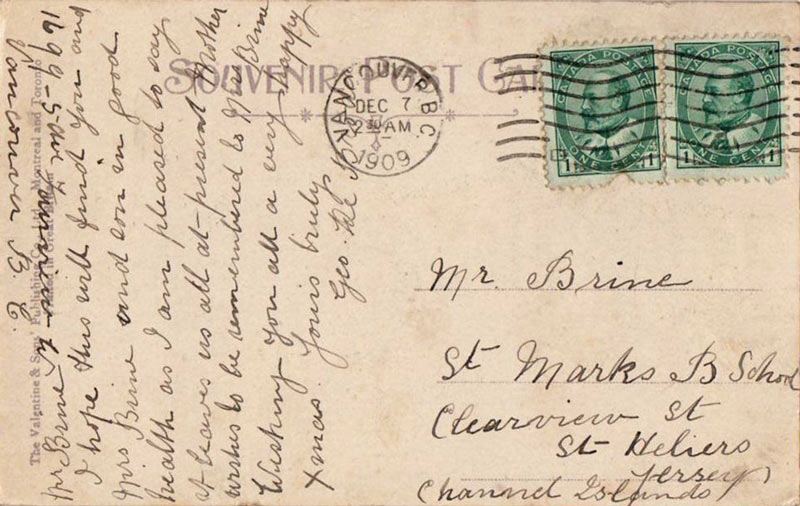 SOUVENIR POST CA
VANCOUVER. B.C.
DEC 7
2 30 AM
1909
CANADA POSTAGE
ONE CENT
1 1
CANADA POSTAGE
ONE CENT
1 1
The Valentine & Sons' Publishing Co. Montreal and Toronto
Vancouver B. C.
Mr Brine
I hope this will find you and
Mrs Brine and son in good
health as I am pleased to say
it leaves us all at present Mother
wishes to be remembered to Mrs Brine
Wishing you all a very happy
Xmas. Yours truly
Geo.
Mr. Brine
St Marks B School
Clearview St
St Heliers
Jersey
Channel Islands